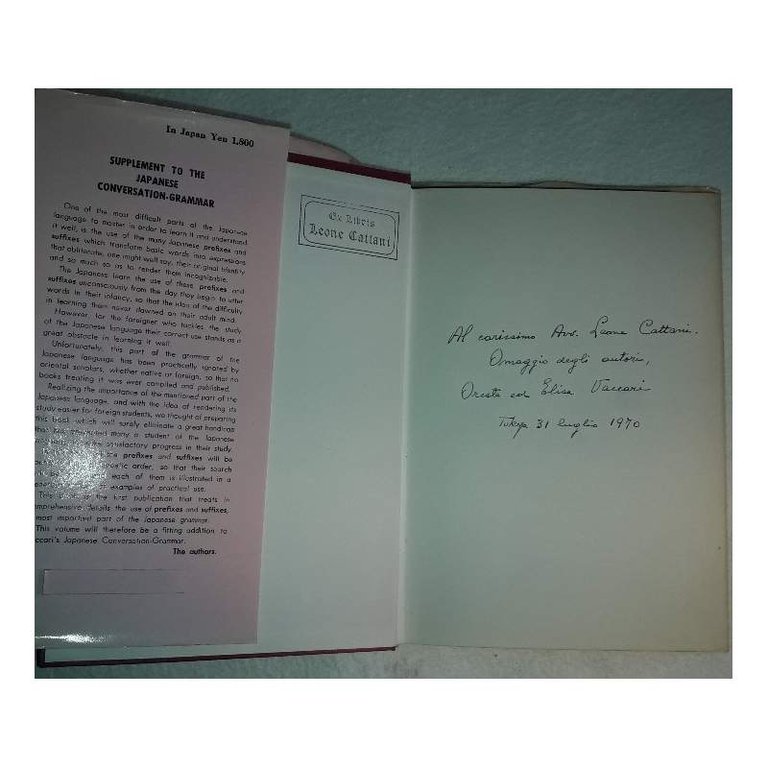 In Japan Yen 1,800
SUPPLEMENT TO THE
JAPANESE
CONVERSATION-GRAMMAR
One of the most difficult parts of the Japanese
language to master in order to learn it and understand
it well, is the use of the many Japanese prefixes and
suffixes which transform basic words into expressions
that obliterate, one might well say, their original identity
and so much so as to render them irrecognizable.
The Japanese learn the use of these prefixes and
suffixes unconsciously from the day they begin to utter
words in their infancy, so that the idea of the difficulty
in learning them never dawned on their adult mind.
However, for the foreigner who tackles the study
of the Japanese language their correct use stands as a
great obstacle in learning it well.
Unfortunately, this part of the grammar of the
Japanese language has been practically ignored by
oriental scholars, whether native or foreign, so that no
books treating it was ever compiled and published.
Realizing the importance of the mentioned part of the
Japanese language, and with the idea of rendering its
study easier for foreign students, we thought of preparing
this book which will surely eliminate a great handicap
that has many a student of the Japanese
satisfactory progress in their study.
prefixes and suffixes will be
order, so that their search
each of them is illustrated in a
examples of practical use.
This is the first publication that treats in
comprehensive details the use of prefixes and suffixes,
most important part of the Japanese grammar.
This volume will therefore be a fitting addition to
Vaccari's Japanese Conversation-Grammar.
The authors.
Ex Libris
Leone Cattani
Al carissimo Avv. Leone Cattani.
Omaggio degli autori,
Oreste ed Elisa Vaccari
Tokyo 31 luglio 1970